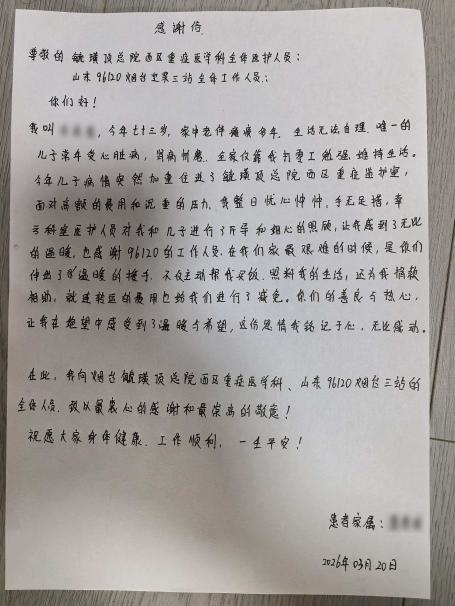 感谢信
尊敬的 毓璜顶总院西区重症医学科全体医护人员:
山东 96120 烟台三站全体工作人员:
你们好!
我叫 , 今年七十三岁, 家中老伴瘫痪多年. 生活无法自理. 唯一的
儿子常年受心脏病, 肾病折磨. 全家仅靠我打零工勉强维持生活.
今年儿子病情突然加重住进了毓璜顶总院西区重症监护室,
面对高额的费用和沉重的压力. 我整日忧心忡忡. 手无足措, 幸
亏科室医护人员对我和儿子进行了开导和细心的照顾, 让我感到了无比
的温暖, 也感谢96120的工作人员. 在我们家最艰难的时候, 是你们
伸出了温暖的援手. 不仅主动帮我买饭. 照料我的生活, 还为我捐款
相助, 就连转运的费用也给我们进行了减免。你们的善良与热心,
让我在绝望中感受到了温暖与希望, 这份恩情我铭记于心, 无比感动。
在此, 我向烟台毓璜顶总院西区重症医学科、山东96120烟台三站的
全体人员. 致以最衷心的感谢和最崇高的敬意!
祝愿大家身体健康. 工作顺利, 一生平安!
患者家属:
2026年03月20日